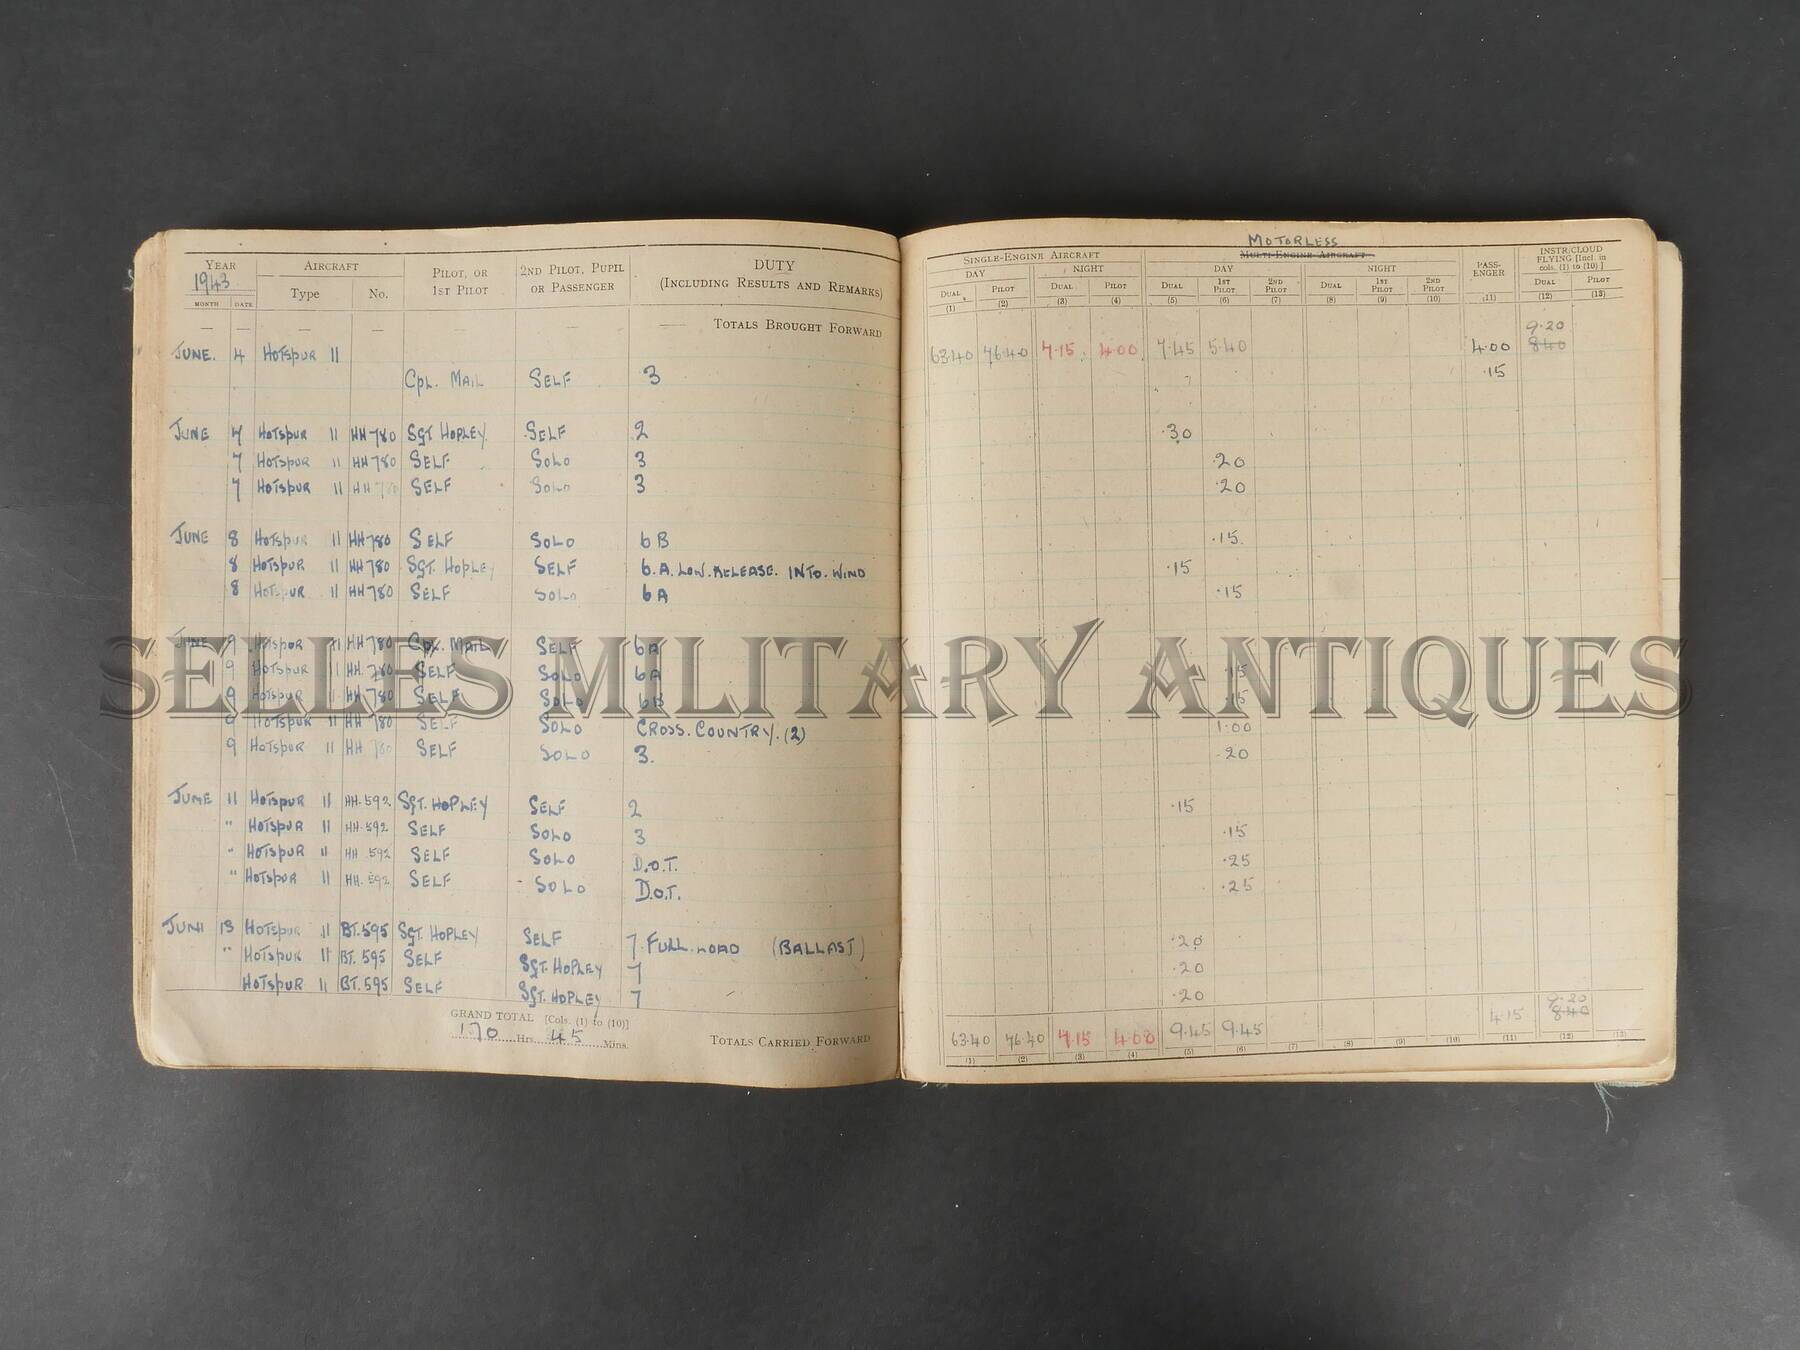 MOTORLESS
YEAR AIRCRAFT PILOT, OR 2ND PILOT, PUPIL DUTY SINGLE-ENGINE AIRCRAFT MULTI-ENGINE AIRCRAFT PASS- INSTR/CLOUD
1943 Type No. 1ST PILOT OR PASSENGER (INCLUDING RESULTS AND REMARKS) DAY NIGHT DAY NIGHT ENGER FLYING [Incl. in
cols. (1) to (10)]
MONTH DATE DUAL PILOT DUAL PILOT DUAL 1ST PILOT 2ND PILOT DUAL 1ST PILOT 2ND PILOT DUAL PILOT
(1) (2) (3) (4) (5) (6) (7) (8) (9) (10) (11) (12) (13)
— — — — — — —— TOTALS BROUGHT FORWARD 9.20
JUNE. 4 HOTSPUR II 63.40 76.40 7.15 4.00 7.45 5.40 4.00 8.40
CPL. MAIL SELF 3 .15
JUNE 7 HOTSPUR II HH 780 SGT. HOPLEY SELF 2 .30
7 HOTSPUR II HH 780 SELF SOLO 3 .20
7 HOTSPUR II HH 780 SELF SOLO 3 .20
JUNE 8 HOTSPUR II HH 780 SELF SOLO 6B .15
8 HOTSPUR II HH 780 SGT. HOPLEY SELF 6.A. LOW. RELEASE. INTO. WIND .15
8 HOTSPUR II HH 780 SELF SOLO 6A .15
JUNE 9 HOTSPUR II HH 780 CPL. MAIL SELF
9 HOTSPUR II HH. 780 SELF SOLO 6A .15
9 HOTSPUR II HH 780 SELF SOLO 6B .15
9 HOTSPUR II HH 780 SELF SOLO CROSS. COUNTRY. (2) 1.00
9 HOTSPUR II HH 780 SELF SOLO 3. .20
SELLES MILITARY ANTIQUES
JUNE 11 HOTSPUR II HH.592 SGT. HOPLEY SELF 2 .15
" HOTSPUR II HH.592 SELF SOLO 3 .15
" HOTSPUR II HH 592 SELF SOLO D.O.T. .25
" HOTSPUR II HH.592 SELF SOLO D.O.T. .25
JUNE 13 HOTSPUR II BT.595 SGT. HOPLEY SELF 7. FULL. LOAD (BALLAST) .20
" HOTSPUR II BT.595 SELF SGT. HOPLEY 7 .20
HOTSPUR II BT.595 SELF SGT. HOPLEY 7 .20
GRAND TOTAL [Cols. (1) to (10)] 9.20
170 Hrs. 45 Mins. TOTALS CARRIED FORWARD 63.40 76.40 7.15 4.00 9.45 9.45 4.15 8.40
(1) (2) (3) (4) (5) (6) (7) (8) (9) (10) (11) (12) (13)